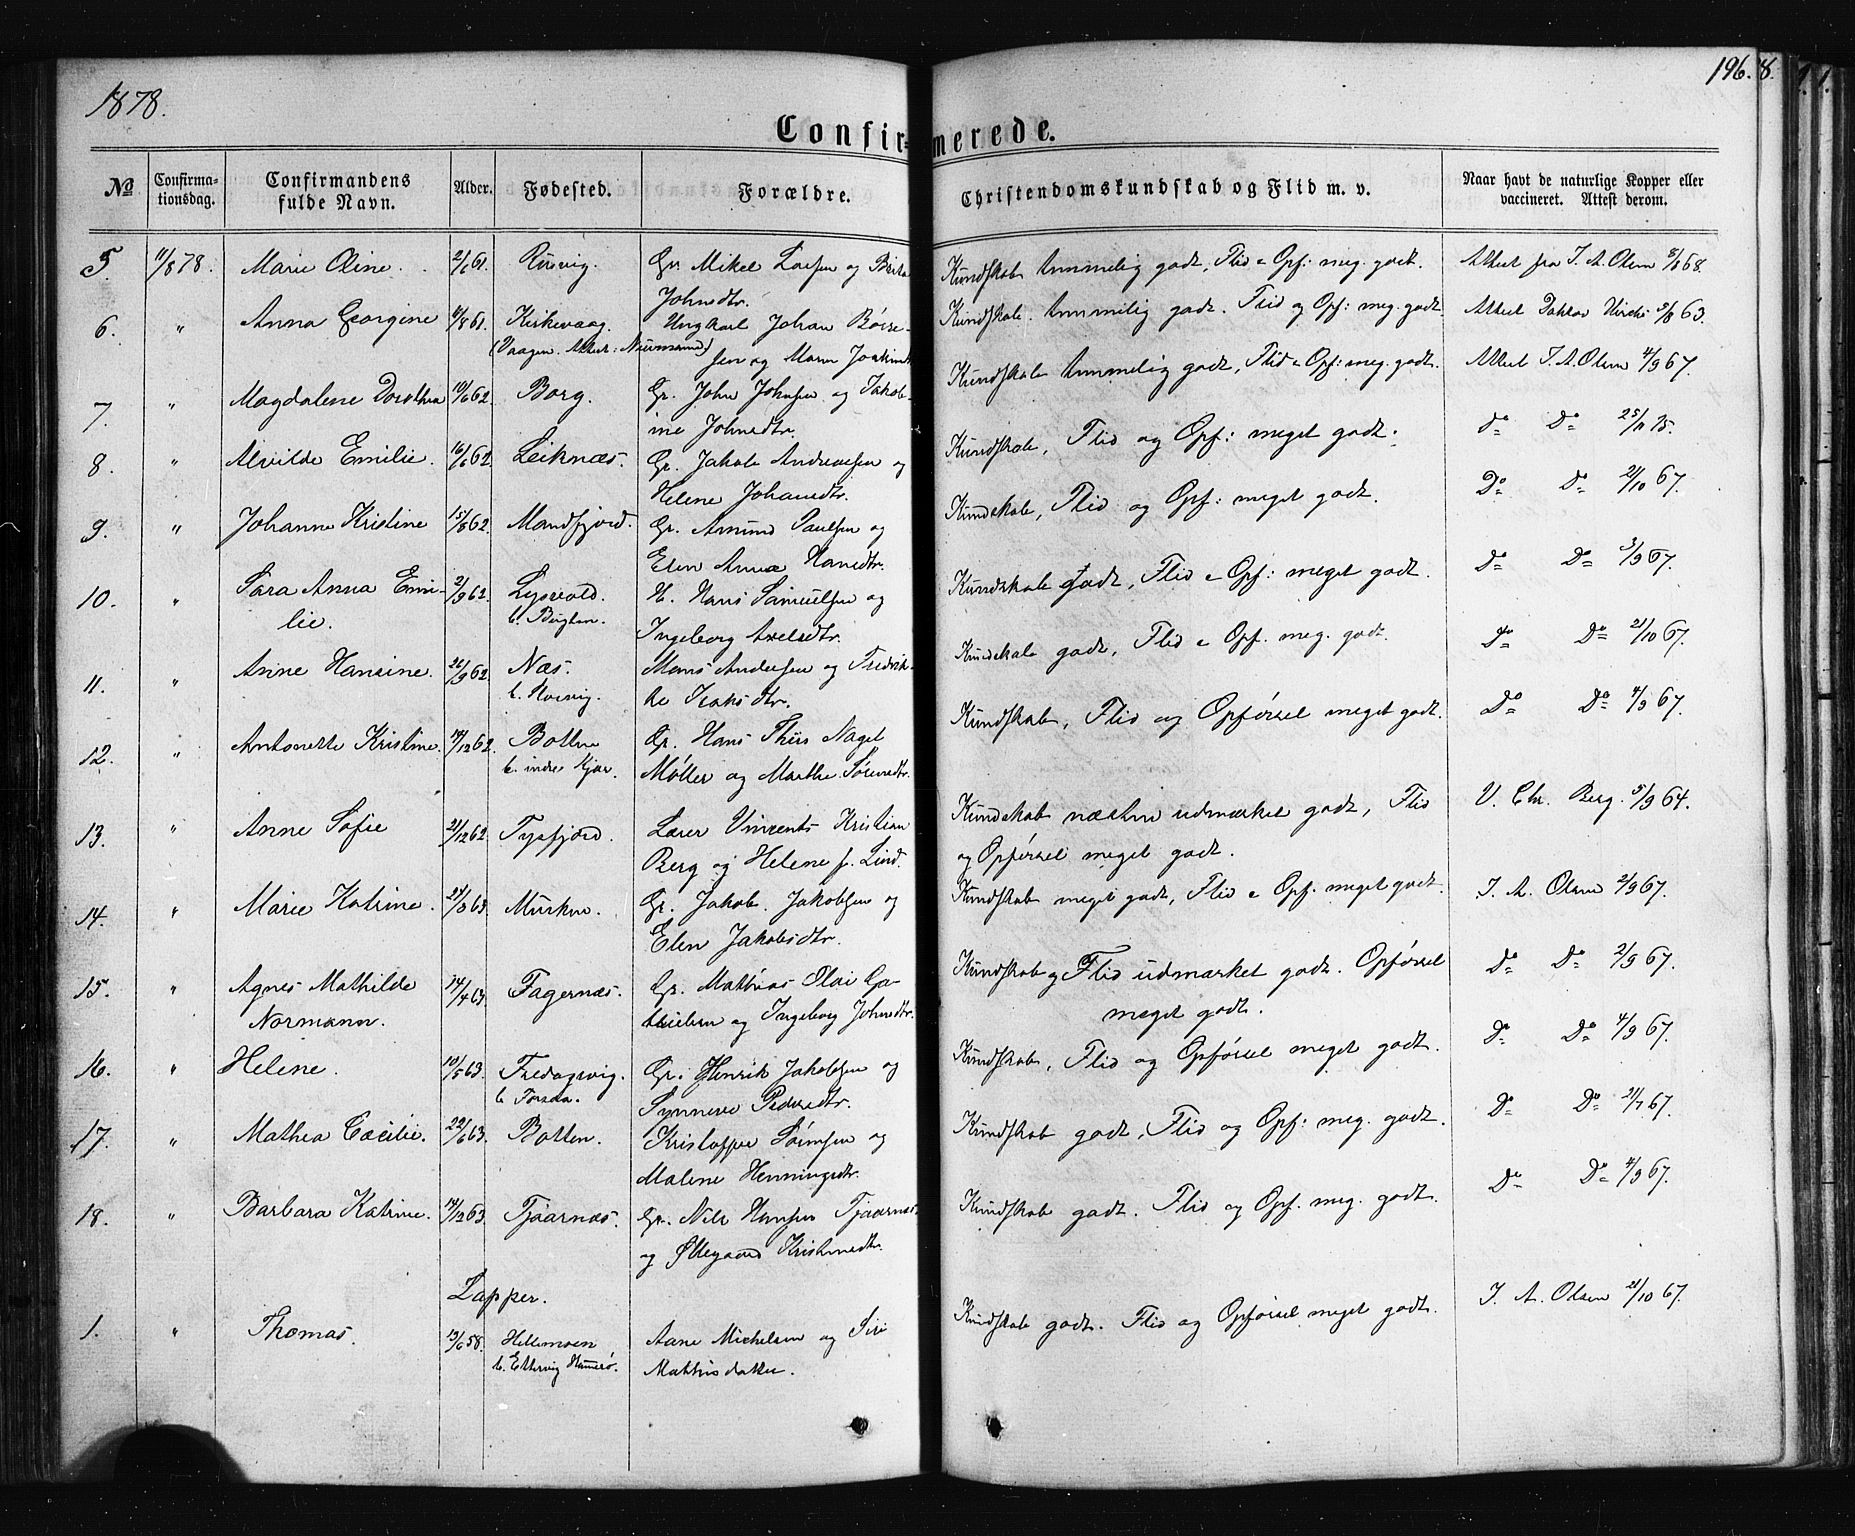 1878.
196.
8.
Confirmerede.
№ Confirmationsdag. Confirmandens fulde Navn. Alder. Fødested. Forældre. Christendomskundskab og Flid m. v. Naar havt de naturlige Kopper eller vaccineret. Attest derom.
5 11/8 78. Marie Oline. 2/6 61. Gr. Mikel Larsen og Kundskab temmelig godt, Flid & Opf: meg. godt. Attest fra I. A. Olsen 8/8 68.
Johnsdtr.
6. " Anna Georgine 11/8 61. Kirkevaag. Ungkarl Johan Kundskab temmelig godt. Flid og Opf: meg. godt Attest 63.
(Vaagen. Attest:
sen og Maren
7. " Magdalene Dorothea 10/6 62. Borg. Gr. John Johnsen og Jakob- Kundskab temmelig godt, Flid & Opf: meg. godt. Attest I. A. Olsen 4/9 67.
ine Johnsdtr.
8. " Alvilde Emilie. 16/6 62. Leiknæs. Gr. Jakob Andreassen og Kundskab, Flid og Opf: meget godt. do Do 25/11 75.
Helene Johansdtr.
9. " Johanne Kristine 15/8 62. Mandfjord. Gr. Amund Paulsen og Kundskab, Flid og Opf: meget godt. Do Do 21/10 67.
Elen Anna Hansdtr.
10. " Sara Anna Emi- 2/9 62. Lysvold. H. Hans Samuelsen og Kundskab Godt, Flid & Opf: meget godt. Do Do 3/9 67.
lie. b. Bugten. Ingeborg Axelsdtr.
11. " Anne Hansine. 22/9 62. Næs. Mons Andersen og Fredrik- Kundskab godt, Flid & Opf. meg. godt. do Do 21/10 67.
b. Korsvig. ke Isaksdtr.
12. " Antonette Kristine. 14/12 62. Botten Gr. Hans Thiis Nagel Kundskab, Flid og Opførsel meget godt. Do Do 4/9 67.
b. indre Kjær. Møller og Marthe Sørensdtr.
13. " Anne Sofie 21/12 62. Tysfjord. Lærer Vincents Kristian Kundskab næsten udmærket godt, Flid V. Chr. Berg. 5/9 64.
Berg og Helene f. Lind. og Opførsel meget godt.
14. " Marie Katrine. 21/3 63. Musken. Gr. Jakob Jakobsen og Kundskab meget godt, Flid & Opf. meget godt. I. A. Olsen 2/9 67.
Elen Jakobsdtr.
15. " Agnes Mathilde 14/4 63. Fagernæs. Gr. Mathias Olai Ga- Kundskab og Flid udmærket godt. Opførsel Do Do 2/9 67.
Normann. brielsen og Ingeborg Johnsdtr. meget godt.
16. " Helene. 10/5 63. Fredagsvig. Gr. Henrik Jakobsen og Kundskab, Flid og Opførsel meget godt. Do Do 4/9 67.
b. Korsnæs. Synneve Pedersdtr.
17. " Mathea Cæcilie. 22/6 63. Botten. Kristoffer Sørensen og Kundskab godt, Flid og Opf: meg. godt. Do Do 21/7 67.
Malene Henningsdtr.
18. " Barbara Katrine. 14/12 63. Tjaarnæs. Gr. Nils Hansen Tjaarnæs Kundskab godt. Flid og Opf. meg. godt. Do Do 4/9 67.
og Øllegaard Kristensdtr.
Lapper.
1. " Thomas. 13/6 58. Hellemoen Aane Michelsen og Siri Kundskab godt. Flid og Opførsel meget godt. I. A. Olsen 21/10 67.
b. Ettervig Hamerø. Mathisdatter.